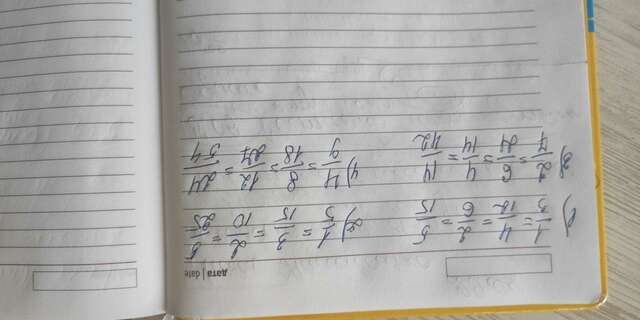 дата | date
1) 1/3 = 4/12 = 2/6 = 5/15 2) 1/5 = 3/15 = 2/10 = 5/25
3) 2/7 = 6/21 = 4/14 = 14/42 4) 4/9 = 8/18 = 12/27 = 24/54